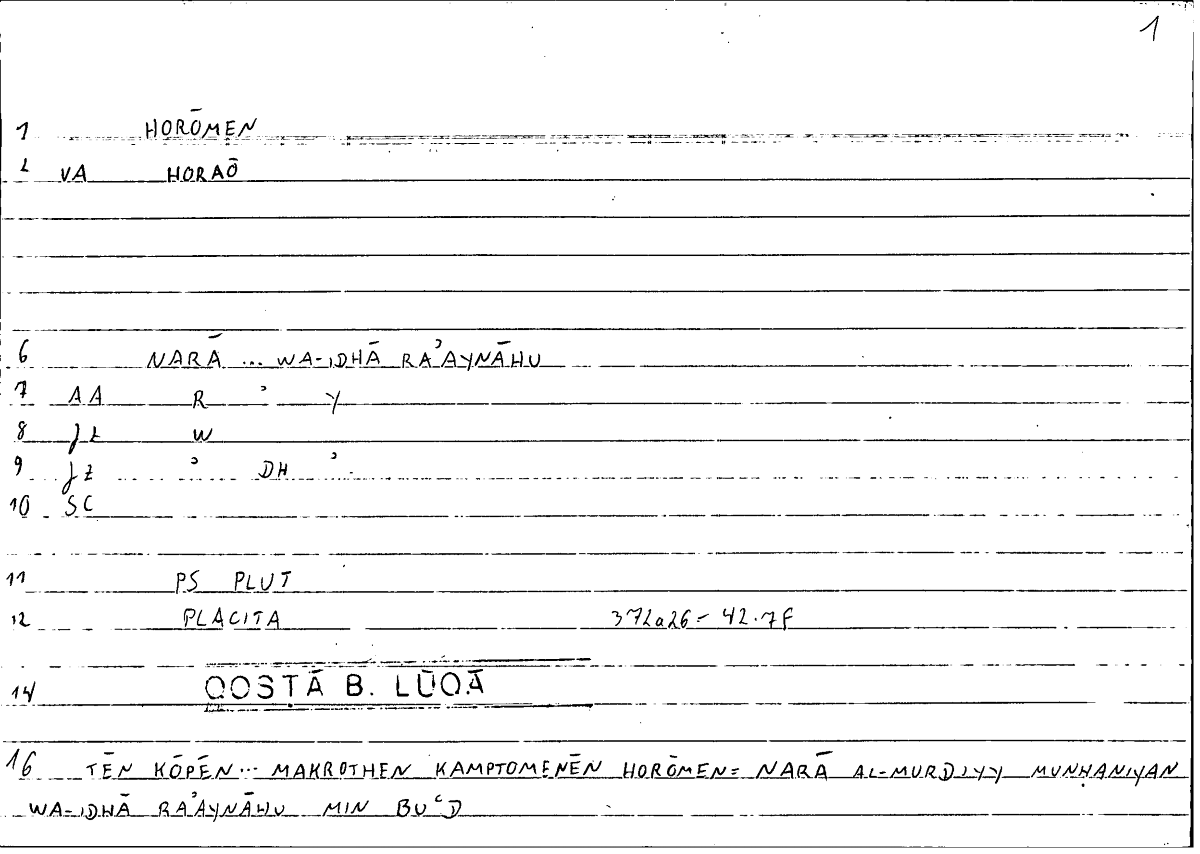 1
1 HORŌMEN
2 VA HORAŌ
6 NARĀ ... WA-IDHĀ RAʾAYNĀHU
7 AA R ʾ Y
8 J2 W
9 JZ ʾ DH ʾ
10 SC
11 PS PLUT
12 PLACITA 372a26 = 42.7f
14 QOSTĀ B. LŪQĀ
16 TĒN KŌPĒN ... MAKROTHEN KAMPTOMENĒN HORŌMEN = NARĀ AL-MURDIYY MUNḤANIYAN
WA-IDHĀ RAʾAYNĀHU MIN BUʿD